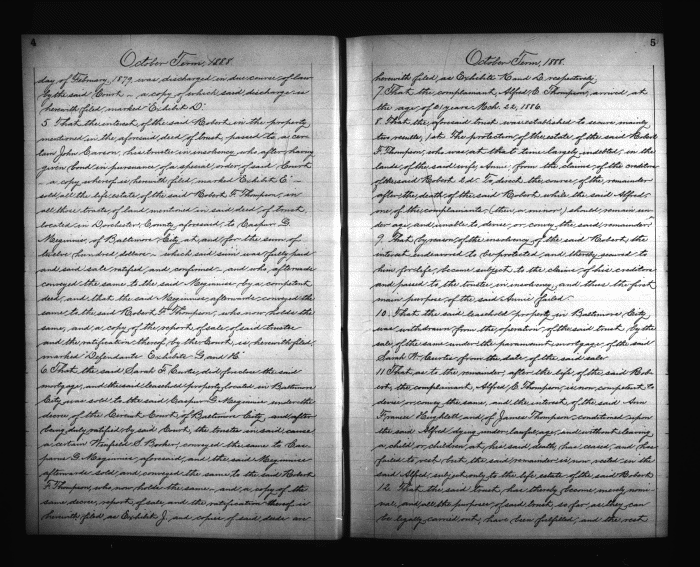 4
October Term, 1888.
day of February 1879, was discharged in due course of law
by the said Court – a copy of which said discharge is
herewith filed, marked "Exhibit D"
5. That the interest of the said Robert in the property
mentioned in the aforesaid deed of trust, passed to a cer-
tain John his trustee in insolvency who after having
given bond in pursuance of a special order of said Court
a copy whereof is herewith filed, marked "Exhibit E" –
sold, all the life estate of the said Robert F. Thompson, in
all those tracts of land, mentioned in said deed of trust,
located in Dorchester County, aforesaid, to Caspar G.
Meginniss, of Baltimore City, at, and for the sum of
twelve hundred, dollars – which said sum was fully paid
and said sale ratified, and confirmed – and who, afterwards
conveyed the same to the said Meginniss, by a competent
deed, and that the said Meginniss, afterwards, conveyed the
same, to the said Robert F. Thompson, who now holds the
same, and a copy of the report of sale, of said trustee
and the ratification thereof, by the Court, is, herewith filed,
marked "Defendants Exhibits G, and H"
6. That the said Sarah Curtis, did, foreclose the said
mortgage, and the said leasehold property, located in Baltimore
City, was sold to the said Caspar G. Meginniss under the
decree of the Circuit Court, of Baltimore City, and after
being duly ratified, by said Court, the trustee in said, cause
a certain Winfield S. conveyed the same to Cas-
par G. Meginniss, aforesaid, and the said Meginniss
afterwards sold, and conveyed the same to the said Robert
F. Thompson, who, now holds the same, and, a copy of the
same, decree, report of sale, and the ratification thereof is
herewith filed, as Exhibit J, and copies of said, deeds are
5
October Term, 1888.
herewith filed, as Exhibits K and L respectively,
7. That the complainant, Alfred C. Thompson, arrived, at
the age of 21 years Mch. 22, 1886.
8. That the, aforesaid trust was established to secure, mainly
two results, 1st The protection, of the estate of the said Robert
F. Thompson, who was, at that time largely indebted, in the
lands of the said wife, Annie, from the claims, of the creditors
of the said Robert. 2d. To direct, the course, of the remainder
after, the death, of the said Robert, while the said Alfred,
one of the complainants, (then, a minor,) should, remain un-
der age, and unable to devise, or convey, the said, remainder.
9. That by reason, of the insolvency, of the said Robert, the
interest endeavored to be protected, and thereby secured to
him for life, became subject, to the claims, of his, creditors
and passed to the trustee in insolvency, and thus the first
main purpose, of the said Annie failed.
10. That the said leasehold property, in Baltimore City,
was withdrawn from the operation, of the said trust, by the
sale of the same under the paramount mortgage, of the said
Sarah Curtis from, the date of the said sale.
11. That, as to the remainder, after the life, of the said Rob-
ert, the complainant, Alfred, C. Thompson, is, now, competent to
devise, or convey, the same, and the interest, of the said Ann
Frances and of James Thompson, conditioned upon
the said Alfred, dying, under, lawful age, and without leaving
a child, or children, at, his said, death, has, ceased, and, has
failed to, vest, but, the said, remainder, is, now, vested, in the
said Alfred, subject, only, to the life estate, of the said Robert.
12. That the said trust, has, thereby become, merely, nomi-
nal, and, all the purposes, of said trust, so far, as, they can
be legally, carried out, have, been, fulfilled, and the rest